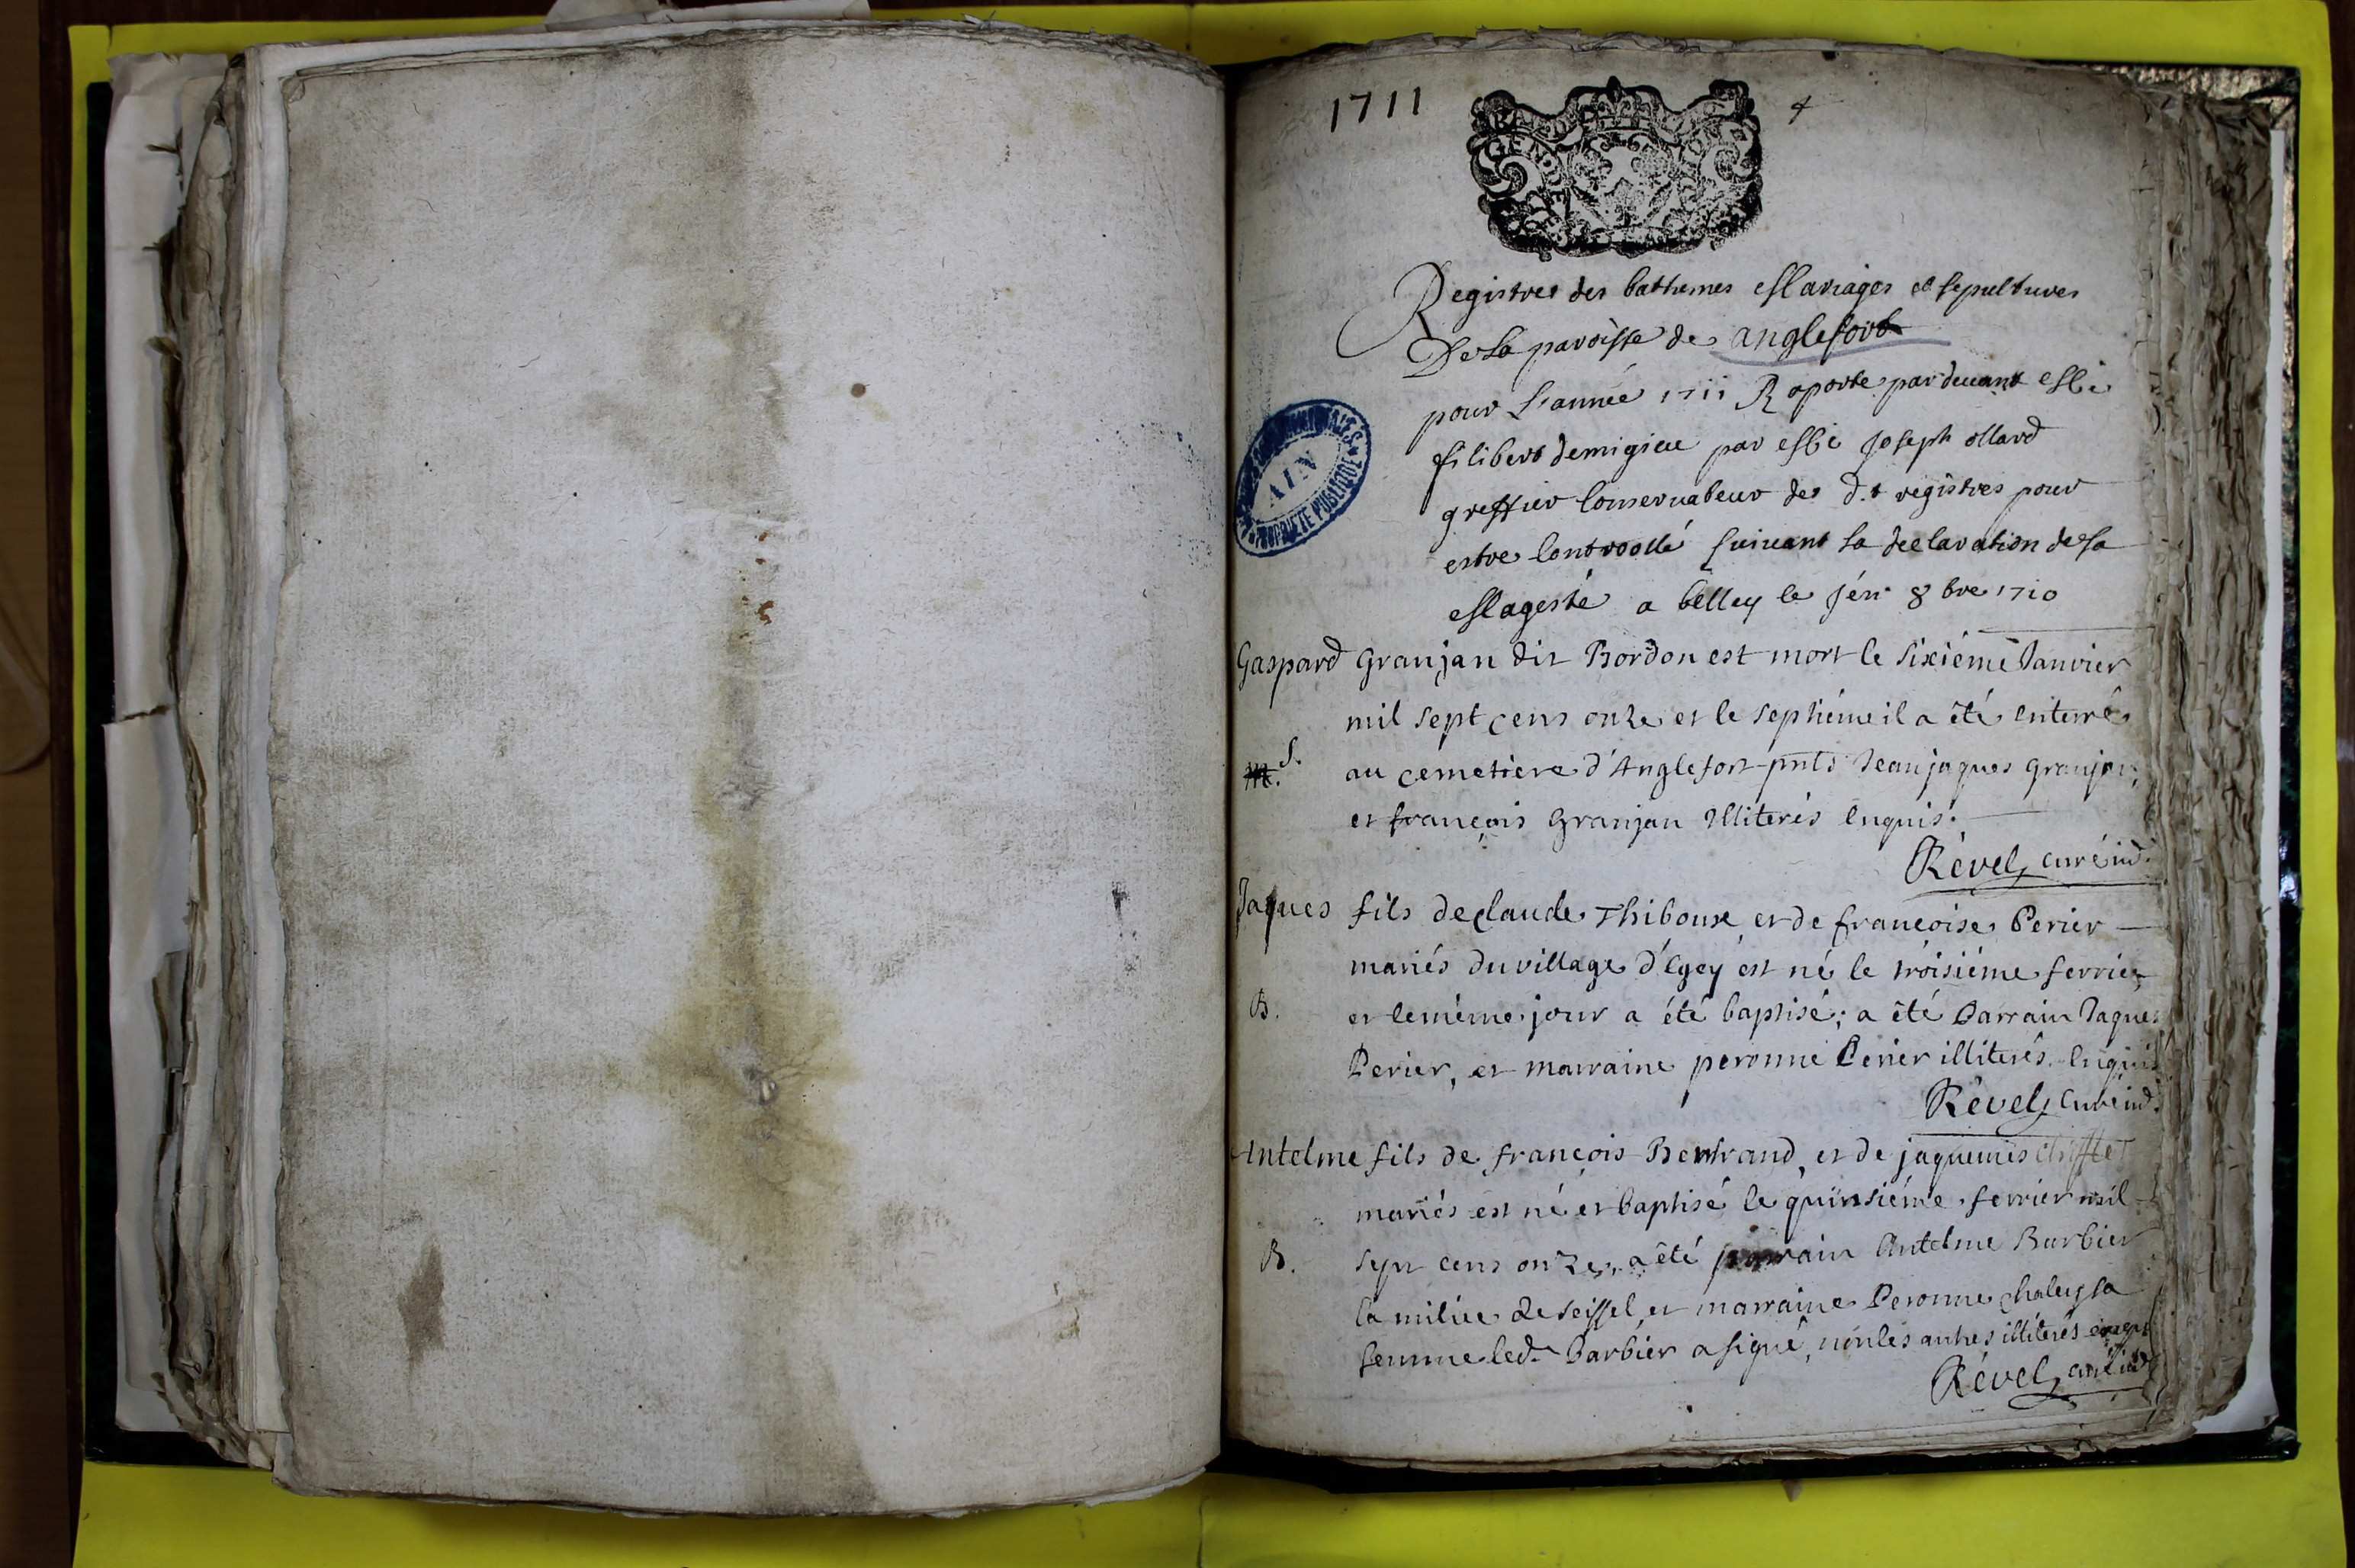 1711
4
GEN
Registres des bathemes Mariages et sepultures
De La paroisse de anglefort
pour L'année 1711 Raporte par devant Me
filibert demigieu par Me Joseph ollard
AIN
PROPRIETE PUBLIQUE
greffier Conservateur des d.t registres pour
estre Controollé suivant La declaration de Sa
Magesté a belley le 8bre 1710
Gaspard Granjan dit Bordon est mort le sixiéme Janvier
mil sept cens onze et le septiéme il a êté enterré
S.
M. au cemetiere d'Anglefort pnts Jean jaques Granjan,
et françois Granjan Illiterés enquis.
Rével curé ind.
Jaques fils de claude Thiboux et de françoise Perier
mariés du village d'Egey est né le troisiéme fevrier
B. et le méme jour a été baptisé; a êté Parrain Jaques
Perier, et marraine peronne Perier illiterés enquis
Rével curé ind.
Antelme fils de françois Bertrand, et de jaquemes
mariés est né et baptisé le quinsiéme fevrier mil
B. sept cens onze, a êté parrain Antelme Barbier
la milice de seissel et marraine Peronne chaley sa
femme led. Barbier a signé, non les autres illiterés enquis
Rével curé ind